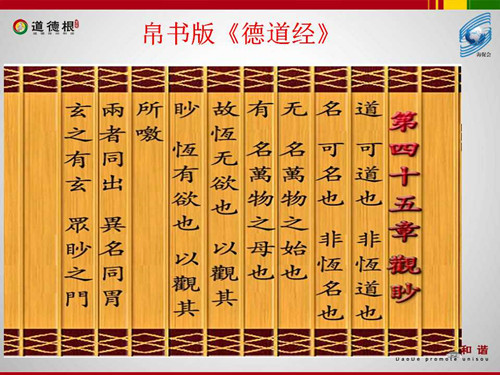 道德根
帛书版《德道经》
第四十五章觀眇
道 可道也 非恆道也
名 可名也 非恆名也
无 名萬物之始也
有 名萬物之母也
故恆无欲也 以觀其
眇 恆有欲也 以觀其
所噭
兩者同出 異名同胃
玄之有玄 眾眇之門
和谐
DaoDe promote unison